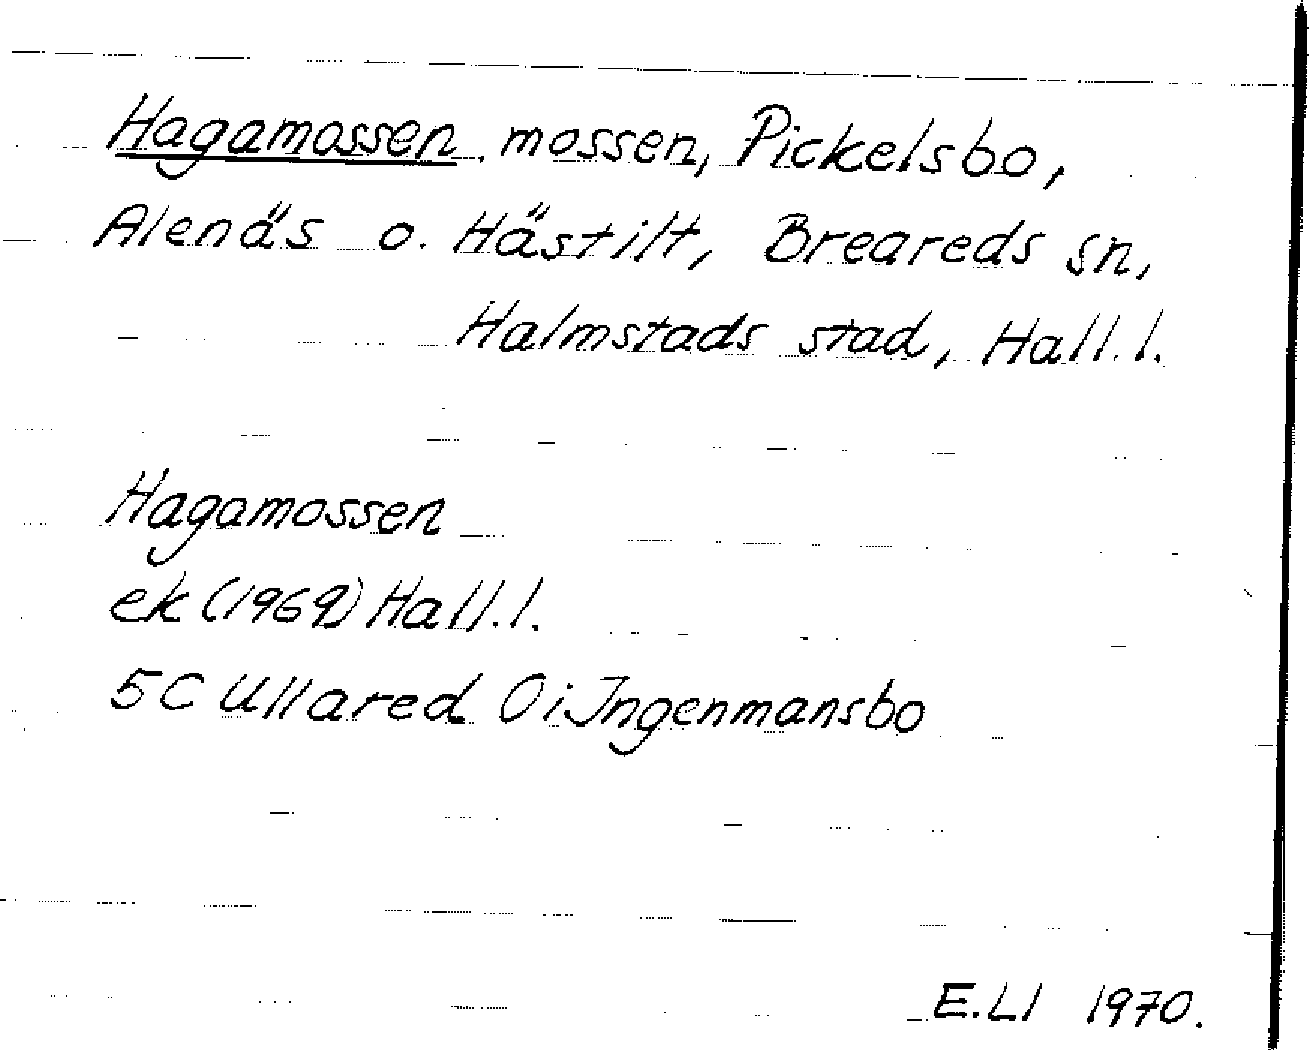 Hagamossen, mossen, Pickelsbo,
Alenäs o. Hästilt, Breareds sn,
Halmstads stad, Hall.l.
Hagamossen
ek (1969) Hall.l.
5C Ullared Oi Ingenmansbo
E.Ll 1970.